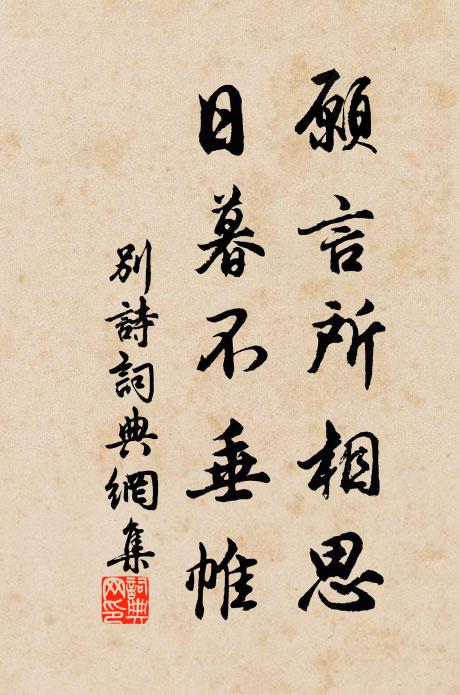 願言所相思
日暮不垂帷
別詩詞典網集
詞典網印